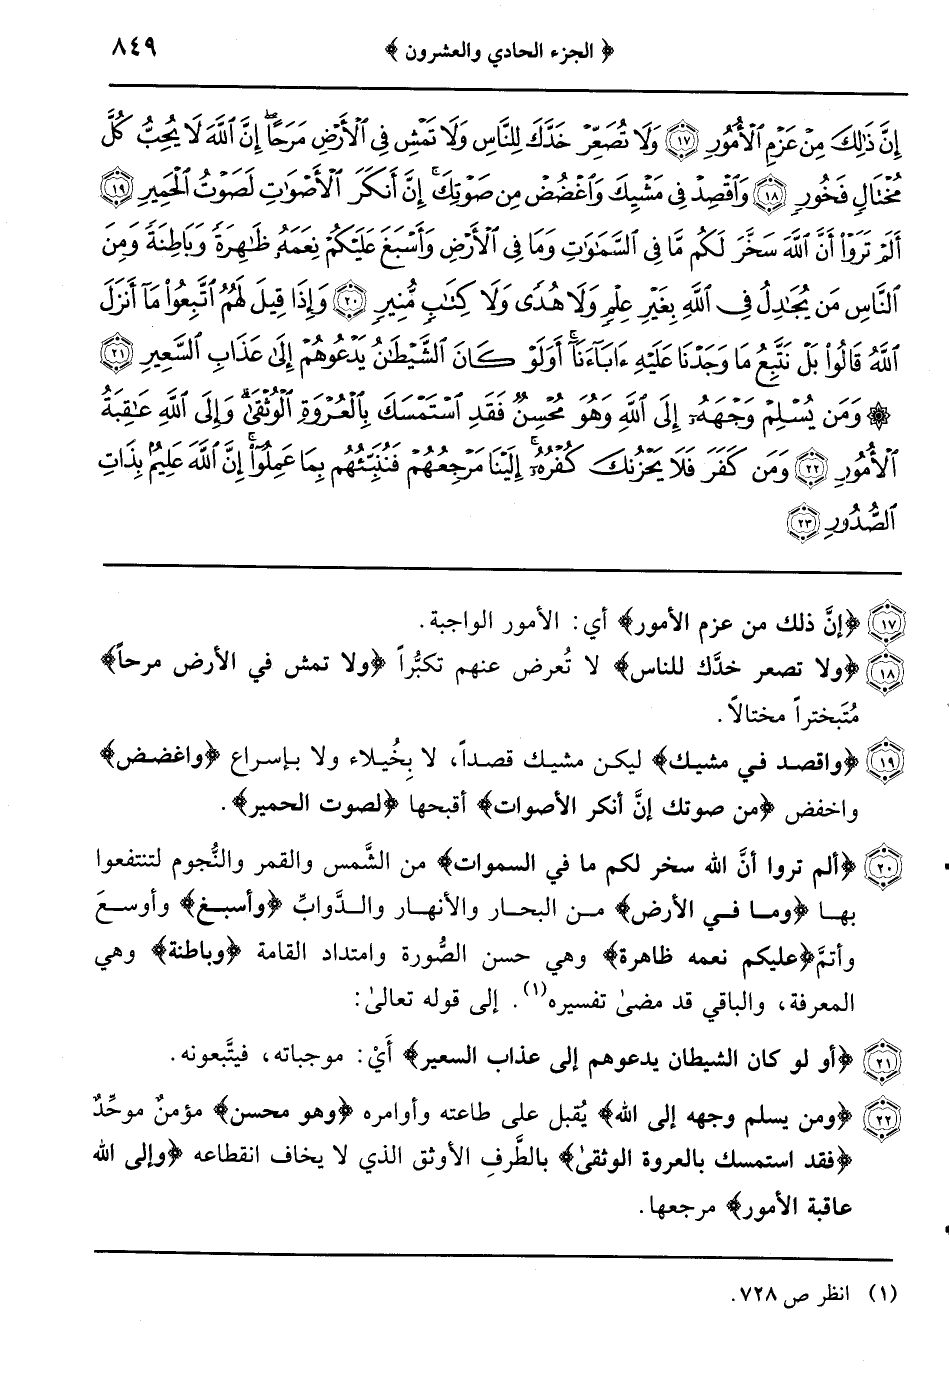 ﴿ الجزء الحادي والعشرون ﴾ ٨٤٩
إِنَّ ذَٰلِكَ مِنْ عَزْمِ ٱلْأُمُورِ ١٧ وَلَا تُصَعِّرْ خَدَّكَ لِلنَّاسِ وَلَا تَمْشِ فِى ٱلْأَرْضِ مَرَحًا ۖ إِنَّ ٱللَّهَ لَا يُحِبُّ كُلَّ
مُخْتَالٍ فَخُورٍ ١٨ وَٱقْصِدْ فِى مَشْيِكَ وَٱغْضُضْ مِن صَوْتِكَ ۚ إِنَّ أَنكَرَ ٱلْأَصْوَٰتِ لَصَوْتُ ٱلْحَمِيرِ ١٩
أَلَمْ تَرَوْا۟ أَنَّ ٱللَّهَ سَخَّرَ لَكُم مَّا فِى ٱلسَّمَٰوَٰتِ وَمَا فِى ٱلْأَرْضِ وَأَسْبَغَ عَلَيْكُمْ نِعَمَهُۥ ظَٰهِرَةً وَبَاطِنَةً ۗ وَمِنَ
ٱلنَّاسِ مَن يُجَٰدِلُ فِى ٱللَّهِ بِغَيْرِ عِلْمٍ وَلَا هُدًى وَلَا كِتَٰبٍ مُّنِيرٍ ٢٠ وَإِذَا قِيلَ لَهُمُ ٱتَّبِعُوا۟ مَآ أَنزَلَ
ٱللَّهُ قَالُوا۟ بَلْ نَتَّبِعُ مَا وَجَدْنَا عَلَيْهِ ءَابَآءَنَآ ۚ أَوَلَوْ كَانَ ٱلشَّيْطَٰنُ يَدْعُوهُمْ إِلَىٰ عَذَابِ ٱلسَّعِيرِ ٢١
۞ وَمَن يُسْلِمْ وَجْهَهُۥٓ إِلَى ٱللَّهِ وَهُوَ مُحْسِنٌ فَقَدِ ٱسْتَمْسَكَ بِٱلْعُرْوَةِ ٱلْوُثْقَىٰ ۗ وَإِلَى ٱللَّهِ عَٰقِبَةُ
ٱلْأُمُورِ ٢٢ وَمَن كَفَرَ فَلَا يَحْزُنكَ كُفْرُهُۥٓ ۚ إِلَيْنَا مَرْجِعُهُمْ فَنُنَبِّئُهُم بِمَا عَمِلُوٓا۟ ۚ إِنَّ ٱللَّهَ عَلِيمٌۢ بِذَاتِ
ٱلصُّدُورِ ٢٣
١٧ ﴿إنَّ ذلك من عزم الأمور﴾ أي: الأمور الواجبة.
١٨ ﴿ولا تصعر خدَّك للناس﴾ لا تُعرض عنهم تكبُّراً ﴿ولا تمش في الأرض مرحاً﴾
مُتَبختراً مختالاً.
١٩ ﴿واقصد في مشيك﴾ ليكن مشيك قصداً، لا بِخُيلاء ولا بإسراع ﴿واغضض﴾
واخفض ﴿من صوتك إنَّ أنكر الأصوات﴾ أقبحها ﴿لصوت الحمير﴾.
٢٠ ﴿ألم تروا أنَّ الله سخر لكم ما في السموات﴾ من الشَّمس والقمر والنُّجوم لتنتفعوا
بها ﴿وما في الأرض﴾ من البحار والأنهار والدَّوابِّ ﴿وأسبغ﴾ وأوسعَ
وأتمَّ ﴿عليكم نعمه ظاهرة﴾ وهي حسن الصُّورة وامتداد القامة ﴿وباطنة﴾ وهي
المعرفة، والباقي قد مضىٰ تفسيره(١). إلى قوله تعالىٰ:
٢١ ﴿أو لو كان الشيطان يدعوهم إلى عذاب السعير﴾ أَيْ: موجباته، فيتَّبعونه.
٢٢ ﴿ومن يسلم وجهه إلى الله﴾ يُقبل على طاعته وأوامره ﴿وهو محسن﴾ مؤمنٌ موحِّدٌ
﴿فقد استمسك بالعروة الوثقىٰ﴾ بالطَّرفِ الأوثق الذي لا يخاف انقطاعه ﴿وإلى الله
عاقبة الأمور﴾ مرجعها.
(١) انظر ص ٧٢٨.